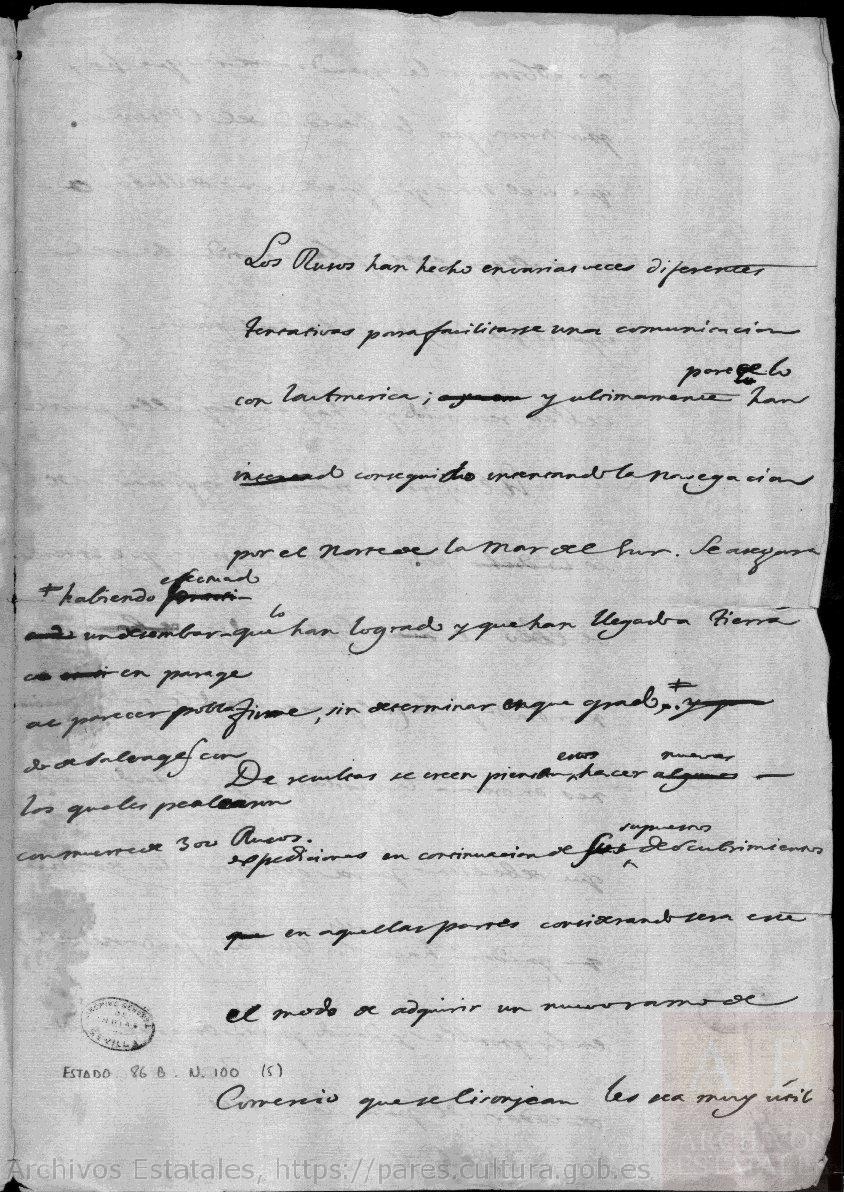 Los Rusos han hecho en varias veces diferentes
tentativas para facilitarse una comunicacion
parece lo
con la America; y ultimamente han
intentad conseguido intentando la navegacion
por el Norte de la Mar del Sur. Se asegura
que lo han logrado y que han llegado a Tierra
firme, sin determinar en que grado ‡. y que
‡ habiendo efectuado
un desembar-
co en parage
al parecer pobla
do de Salvages con
los quales pelearon
con muerte de 300 Rusos.
De resultas se creen piensan estos hacer algunas nuevas
expediciones en continuacion de sus supuestos descubrimientos
que en aquellas partes considerando sera este
el modo de adquirir un nuevo ramo de
Comercio que se lisonjean les sea muy útil
ARCHIVO GENERAL DE INDIAS SEVILLA
ESTADO. 86 B. N. 100 (5)
ARCHIVOS ESTATALES
Archivos Estatales, https://pares.cultura.gob.es